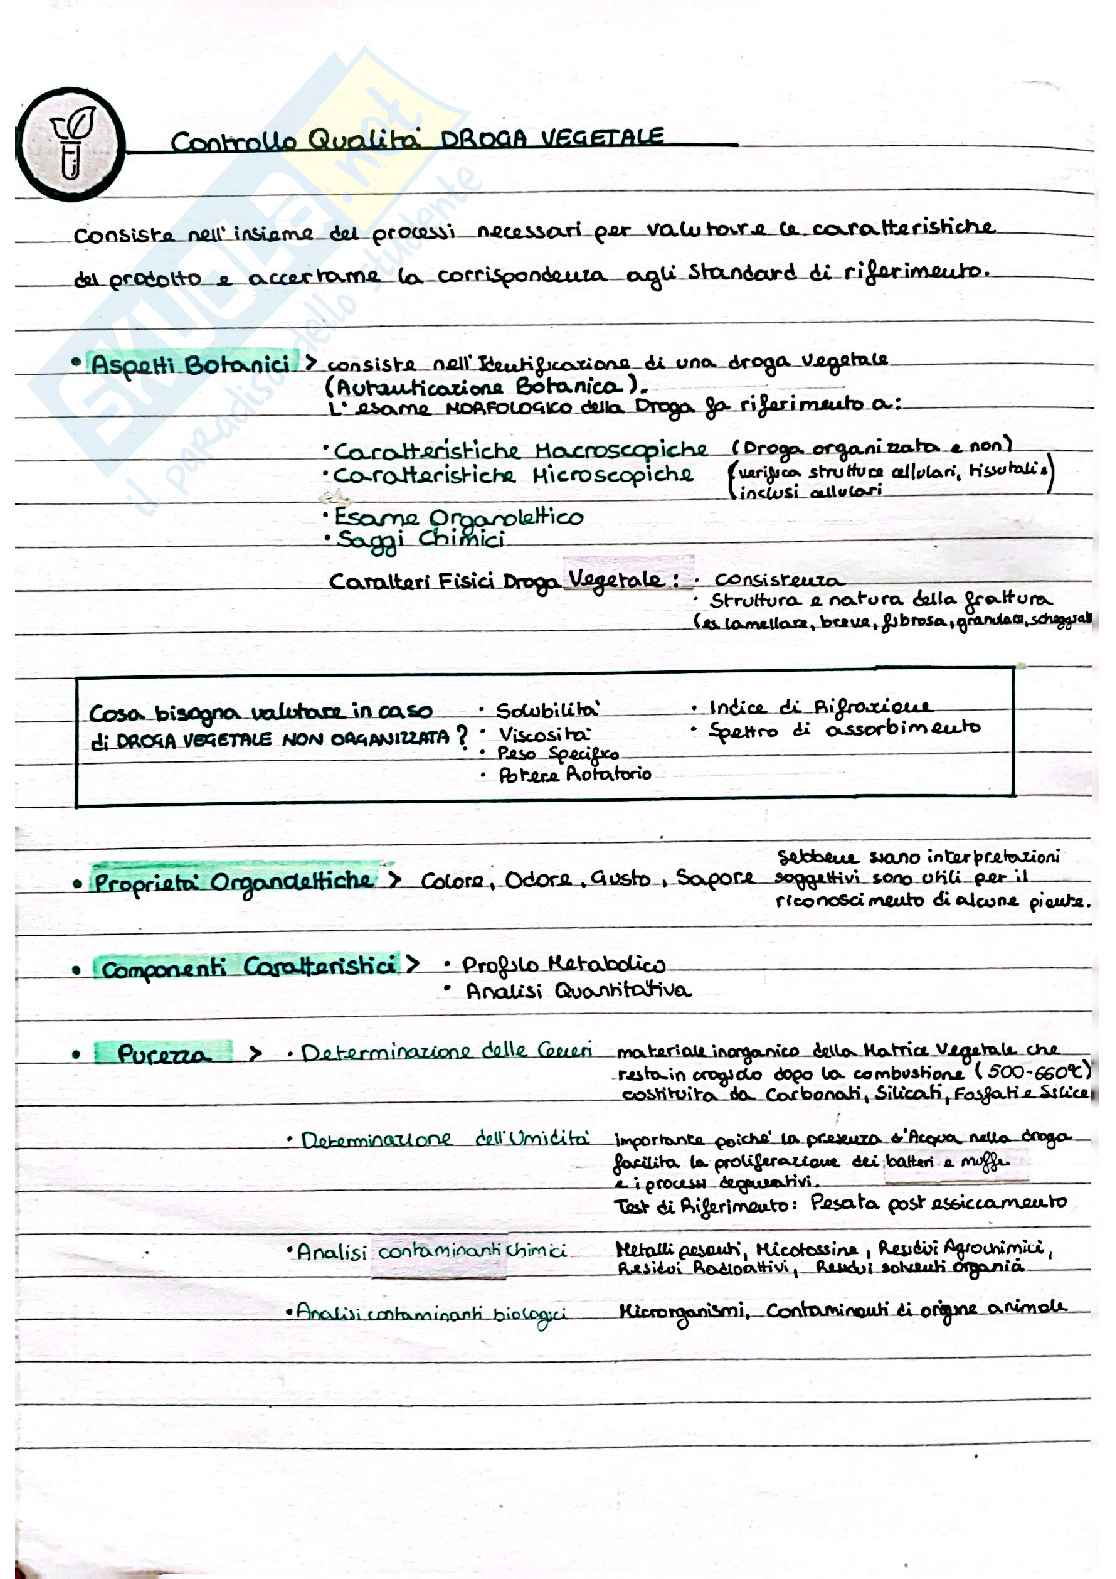 Controllo Qualità DROGA VEGETALE
Consiste nell'insieme dei processi necessari per valutare le caratteristiche
del prodotto e accertarne la corrispondenza agli standard di riferimento.
• Aspetti Botanici > consiste nell'Identificazione di una droga vegetale
(Autenticazione Botanica).
L'esame MORFOLOGICO della Droga fa riferimento a:
· Caratteristiche Macroscopiche (Droga organizzata e non)
· Caratteristiche Microscopiche (verifica strutture cellulari, tissutali e
inclusi cellulari)
· Esame Organolettico
· Saggi Chimici
Caratteri Fisici Droga Vegetale: · Consistenza
· Struttura e natura della frattura
(es lamellare, breve, fibrosa, granulare,
Cosa bisogna valutare in caso
di DROGA VEGETALE NON ORGANIZZATA?
· Solubilità
· Viscosità
· Peso Specifico
· Potere Rotatorio
· Indice di Rifrazione
· Spettro di assorbimento
• Proprietà Organolettiche > Colore, Odore, Gusto, Sapore
Sebbene siano interpretazioni
soggettivi sono utili per il
riconoscimento di alcune piante.
• Componenti Caratteristici > · Profilo Metabolico
· Analisi Quantitativa
• Purezza > · Determinazione delle Ceneri materiale inorganico della Matrice Vegetale che
resta in crogiolo dopo la combustione (500-660°C)
costituita da Carbonati, Silicati, Fosfati e Silice
· Determinazione dell'Umidità importante poiché la presenza d'Acqua nella droga
facilita la proliferazione dei batteri e muffe
e i processi degenerativi.
Test di Riferimento: Pesata post essiccamento
· Analisi contaminanti chimici Metalli pesanti, Micotossine, Residui Agrochimici,
Residui Radioattivi, Residui solventi organici
· Analisi contaminanti biologici Microrganismi, Contaminanti di origine animale
SKUOLA.net
il paradiso dello studente